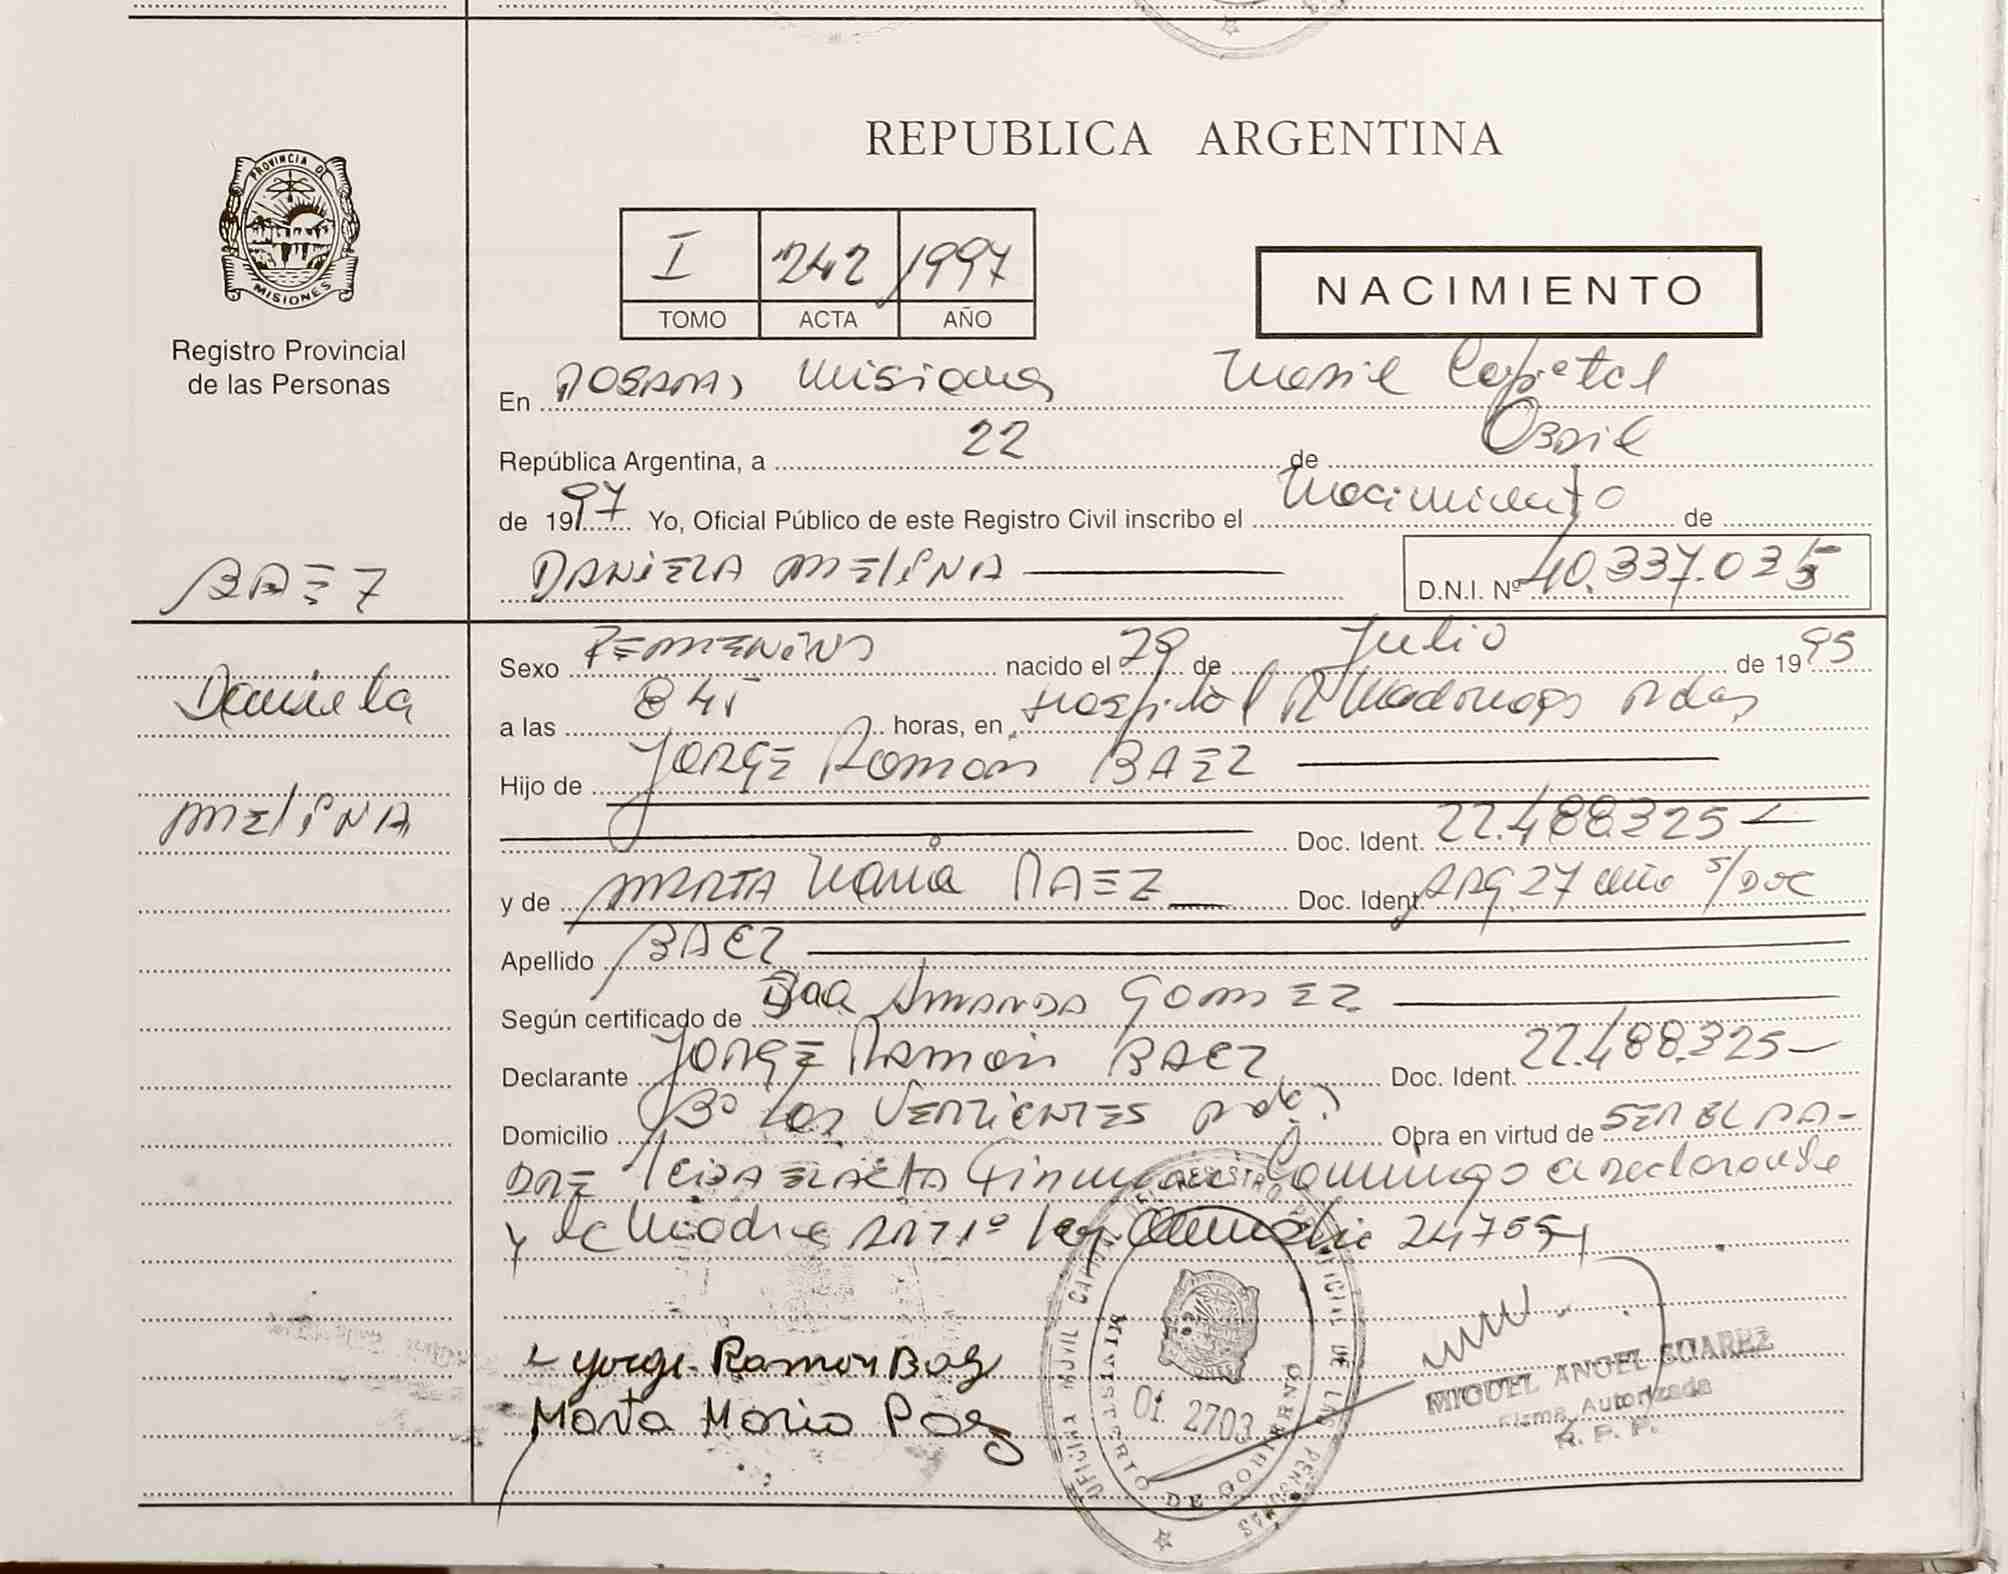 REPUBLICA ARGENTINA
PROVINCIA D
MISIONES
Registro Provincial
de las Personas
I 242 1997
TOMO ACTA AÑO
NACIMIENTO
En POSADAS, Misiones Movil Capital
República Argentina, a 22 de Abril
de 1997 Yo, Oficial Público de este Registro Civil inscribo el Nacimiento de
BAEZ
DANIELA MELINA D.N.I. Nº 40.337.035
Daniela
MELINA
Sexo FEMENINO nacido el 29 de Julio de 1995
a las 845 horas, en Hospital R Madariaga Pdas
Hijo de JORGE Ramon BAEZ
Doc. Ident. 22.488.325
y de MARTA Maria PAEZ Doc. Ident. ARG 27 años S/DOC
Apellido BAEZ
Según certificado de Dra AMANDA GOMEZ
Declarante JORGE RAMON BAEZ Doc. Ident. 22.488.325
Domicilio Bº Las VERTIENTES Pdas Obra en virtud de SER EL PA-
DRE Leida el acta firman Conmigo el declarante
y la Madre ART 1º Ley 24755
Jorge Ramon Baez
Marta Maria Paez
OFICINA MOVIL CAPITAL DEL REGISTRO PROVINCIAL DE LAS PERSONAS
MINISTERIO DE GOBIERNO
01. 2703
MIGUEL ANGEL SUAREZ
Firma Autorizada
R. P. P.